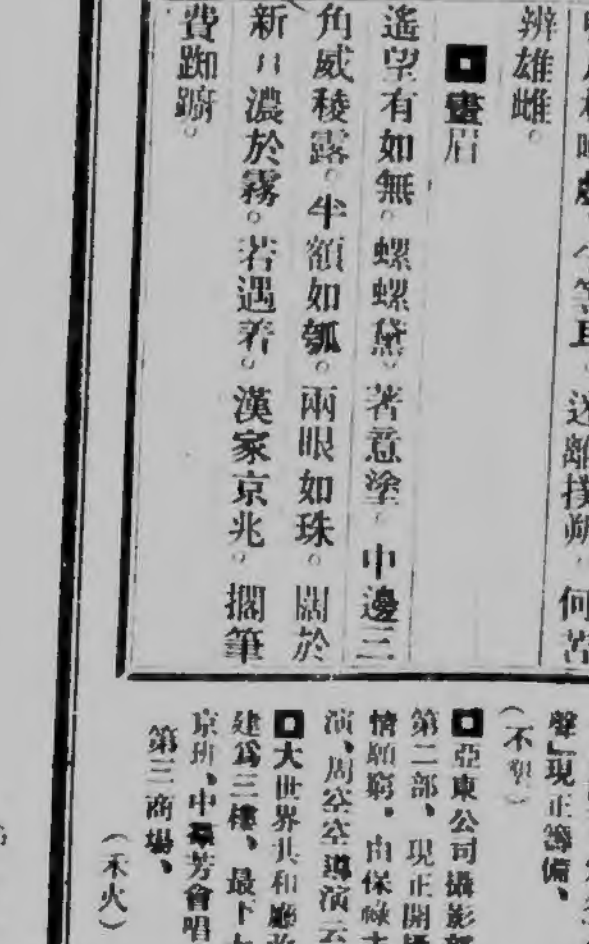 辨雄雌。
畫眉
遙望有如無。螺螺黛。著意塗。中邊三
角威稜露。半額如瓠。兩眼如珠。闊於
新月濃於霧。若遇着。漢家京兆。擱筆
費踟躕。
聲」現正籌備、
亞東公司攝影
第二部、現正開攝
情願窮、由保祿
演、周空空導演
大世界共和廳
建爲三樓、最下
京班、中羣芳會唱
第三商場、
(禾火)